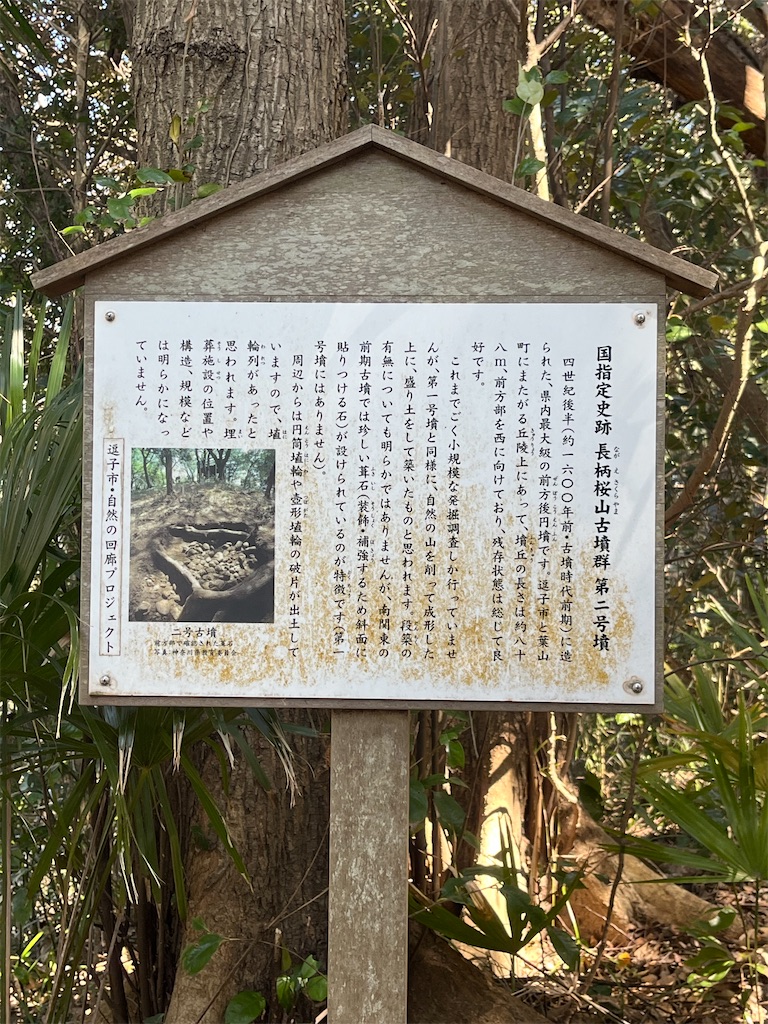 国指定史跡 長柄桜山古墳群 第二号墳
四世紀後半(約一六〇〇年前・古墳時代前期)に造
られた、県内最大級の前方後円墳です。逗子市と葉山
町にまたがる丘陵上にあって、墳丘の長さは約八十
八m、前方部を西に向けており、残存状態は総じて良
好です。
これまでごく小規模な発掘調査しか行っていませ
んが、第一号墳と同様に、自然の山を削って成形した
上に、盛り土をして築いたものと思われます。段築の
有無についても明らかではありませんが、南関東の
前期古墳では珍しい葺石(装飾・補強するため斜面に
貼りつける石)が設けられているのが特徴です(第一
号墳にはありません)。
周辺からは円筒埴輪や壺形埴輪の破片が出土して
いますので、埴
輪列があったと
思われます。埋
葬施設の位置や
構造、規模など
は明らかになっ
ていません。
二号古墳
前方部で確認された葺石
写真:神奈川県教育委員会
逗子市・自然の回廊プロジェクト